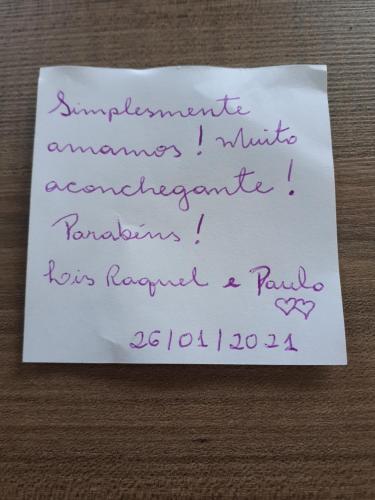 Simplesmente
amamos! Muito
aconchegante!
Parabéns!
Lis Raquel e Paulo
26/01/2021